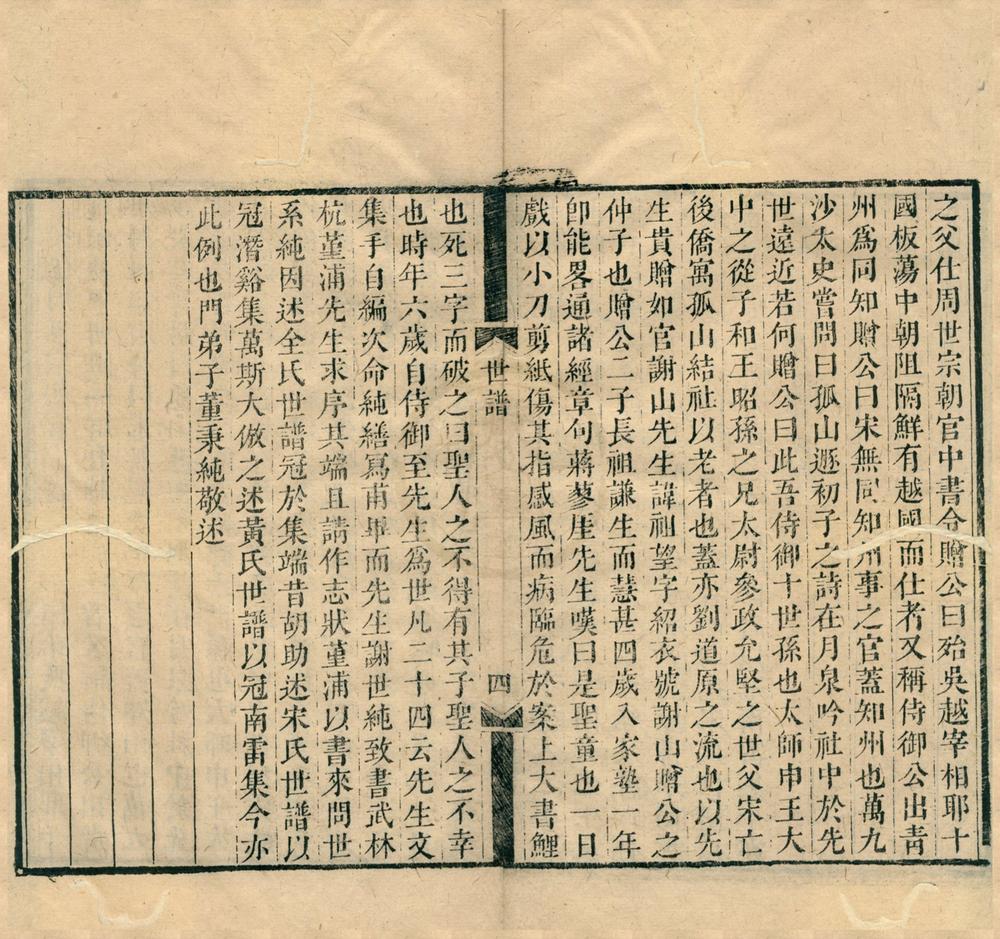 之父仕周世宗朝官中書令贈公曰殆吳越宰相耶十
國板蕩中朝阻隔鮮有越國而仕者又稱侍御公出青
州爲同知贈公曰宋無同知州事之官蓋知州也萬九
沙太史嘗問曰孤山遯初子之詩在月泉吟社中於先
世遠近若何贈公曰此吾侍御十世孫也太師申王大
中之從子和王昭孫之兄太尉參政允堅之世父宋亡
後僑寓孤山結社以老者也蓋亦劉道原之流也以先
生貴贈如官謝山先生諱祖望字紹衣號謝山贈公之
仲子也贈公二子長祖謙生而慧甚四歲入家塾一年
卽能畧通諸經章句蔣蓼厓先生嘆曰是聖童也一日
戲以小刀剪紙傷其指感風而病臨危於案上大書鯉
世譜
四
也死三字而破之曰聖人之不得有其子聖人之不幸
也時年六歲自侍御至先生爲世凡二十四云先生文
集手自編次命純繕寫甫畢而先生謝世純致書武林
杭堇浦先生求序其端且請作志狀堇浦以書來問世
系純因述全氏世譜冠於集端昔胡助述宋氏世譜以
冠潛谿集萬斯大倣之述黃氏世譜以冠南雷集今亦
此例也門弟子董秉純敬述